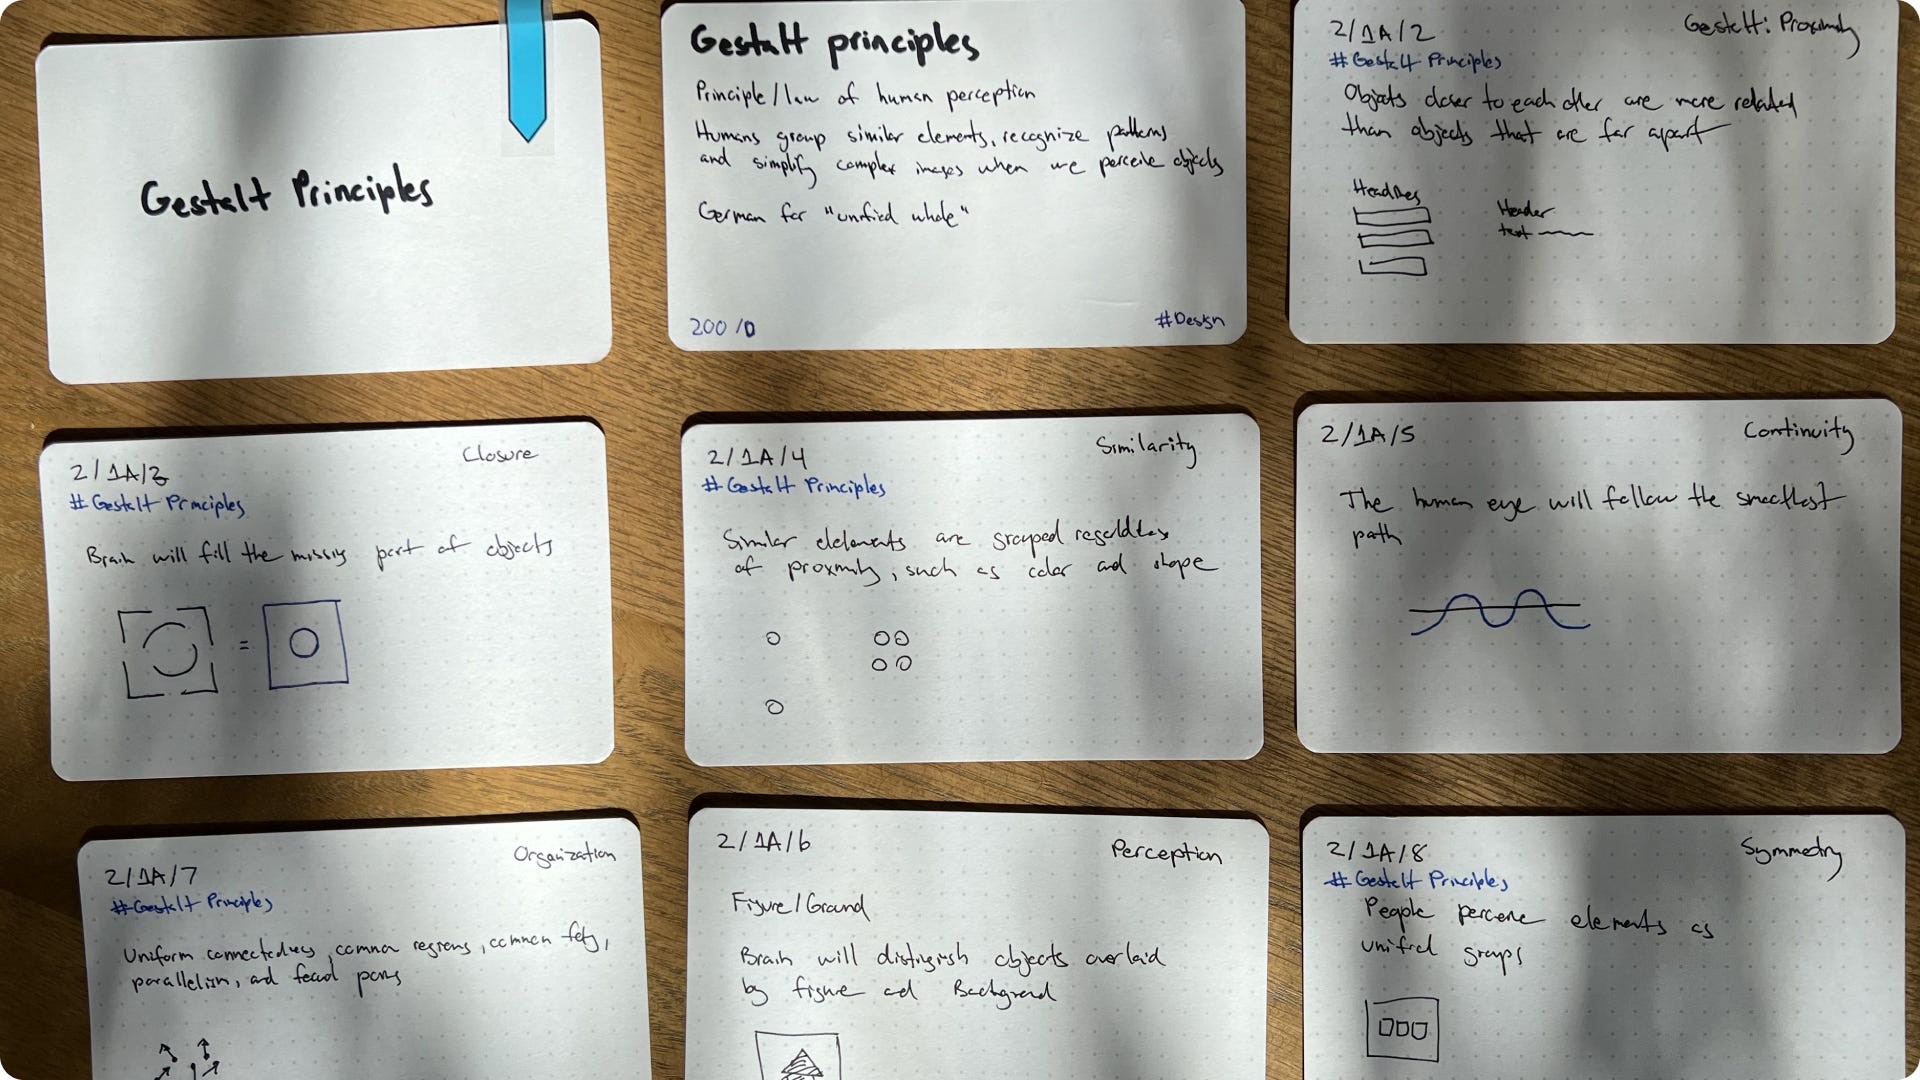 Gestalt Principles
Gestalt principles
Principle/law of human perception
Humans group similar elements, recognize patterns
and simplify complex images when we perceive objects
German for "unified whole"
200/0
#Design
2/1A/2
Gestalt: Proximity
#Gestalt Principles
Objects closer to each other are more related
than objects that are far apart
Headlines
Header
text
2/1A/3
Closure
#Gestalt Principles
Brain will fill the missing part of objects
=
2/1A/4
Similarity
#Gestalt Principles
Similar elelements are grouped regardless
of proximity, such as color and shape
2/1A/5
Continuity
The human eye will follow the smoothest
path
2/1A/7
Organization
#Gestalt Principles
Uniform connectedness, common regions, common fate,
parallelism, and focal points
2/1A/6
Perception
Figure/Ground
Brain will distinguish objects overlaid
by figure and Background
2/1A/8
Symmetry
#Gestalt Principles
People perceive elements as
unified groups